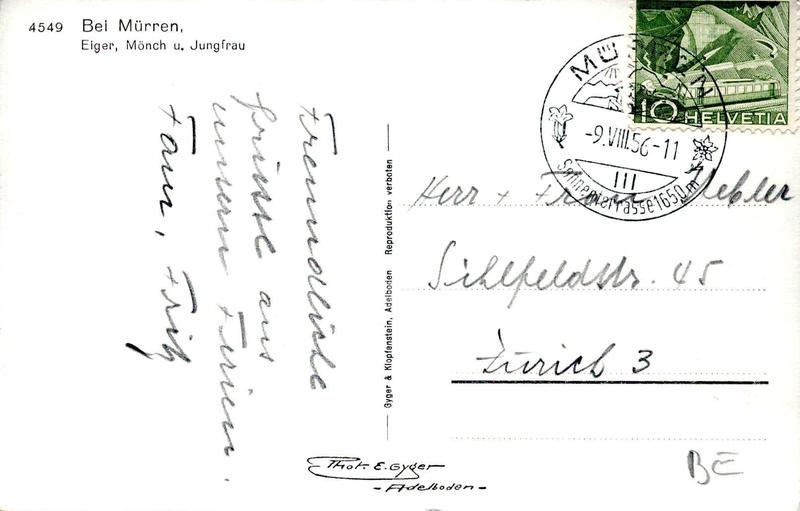 4549 Bei Mürren,
Eiger, Mönch u. Jungfrau
Freundliche
Grüsse aus
unsern Ferien.
Fam. Fritz
Gyger & Klopfenstein, Adelboden Reproduktion verboten
Phot. E. Gyger
- Adelboden -
MÜRREN
-9.VIII.56-11
Sonnenterrasse 1650 m
10 HELVETIA
Herr + Frau
Sihlfeldstr. 45
Zürich 3
BE